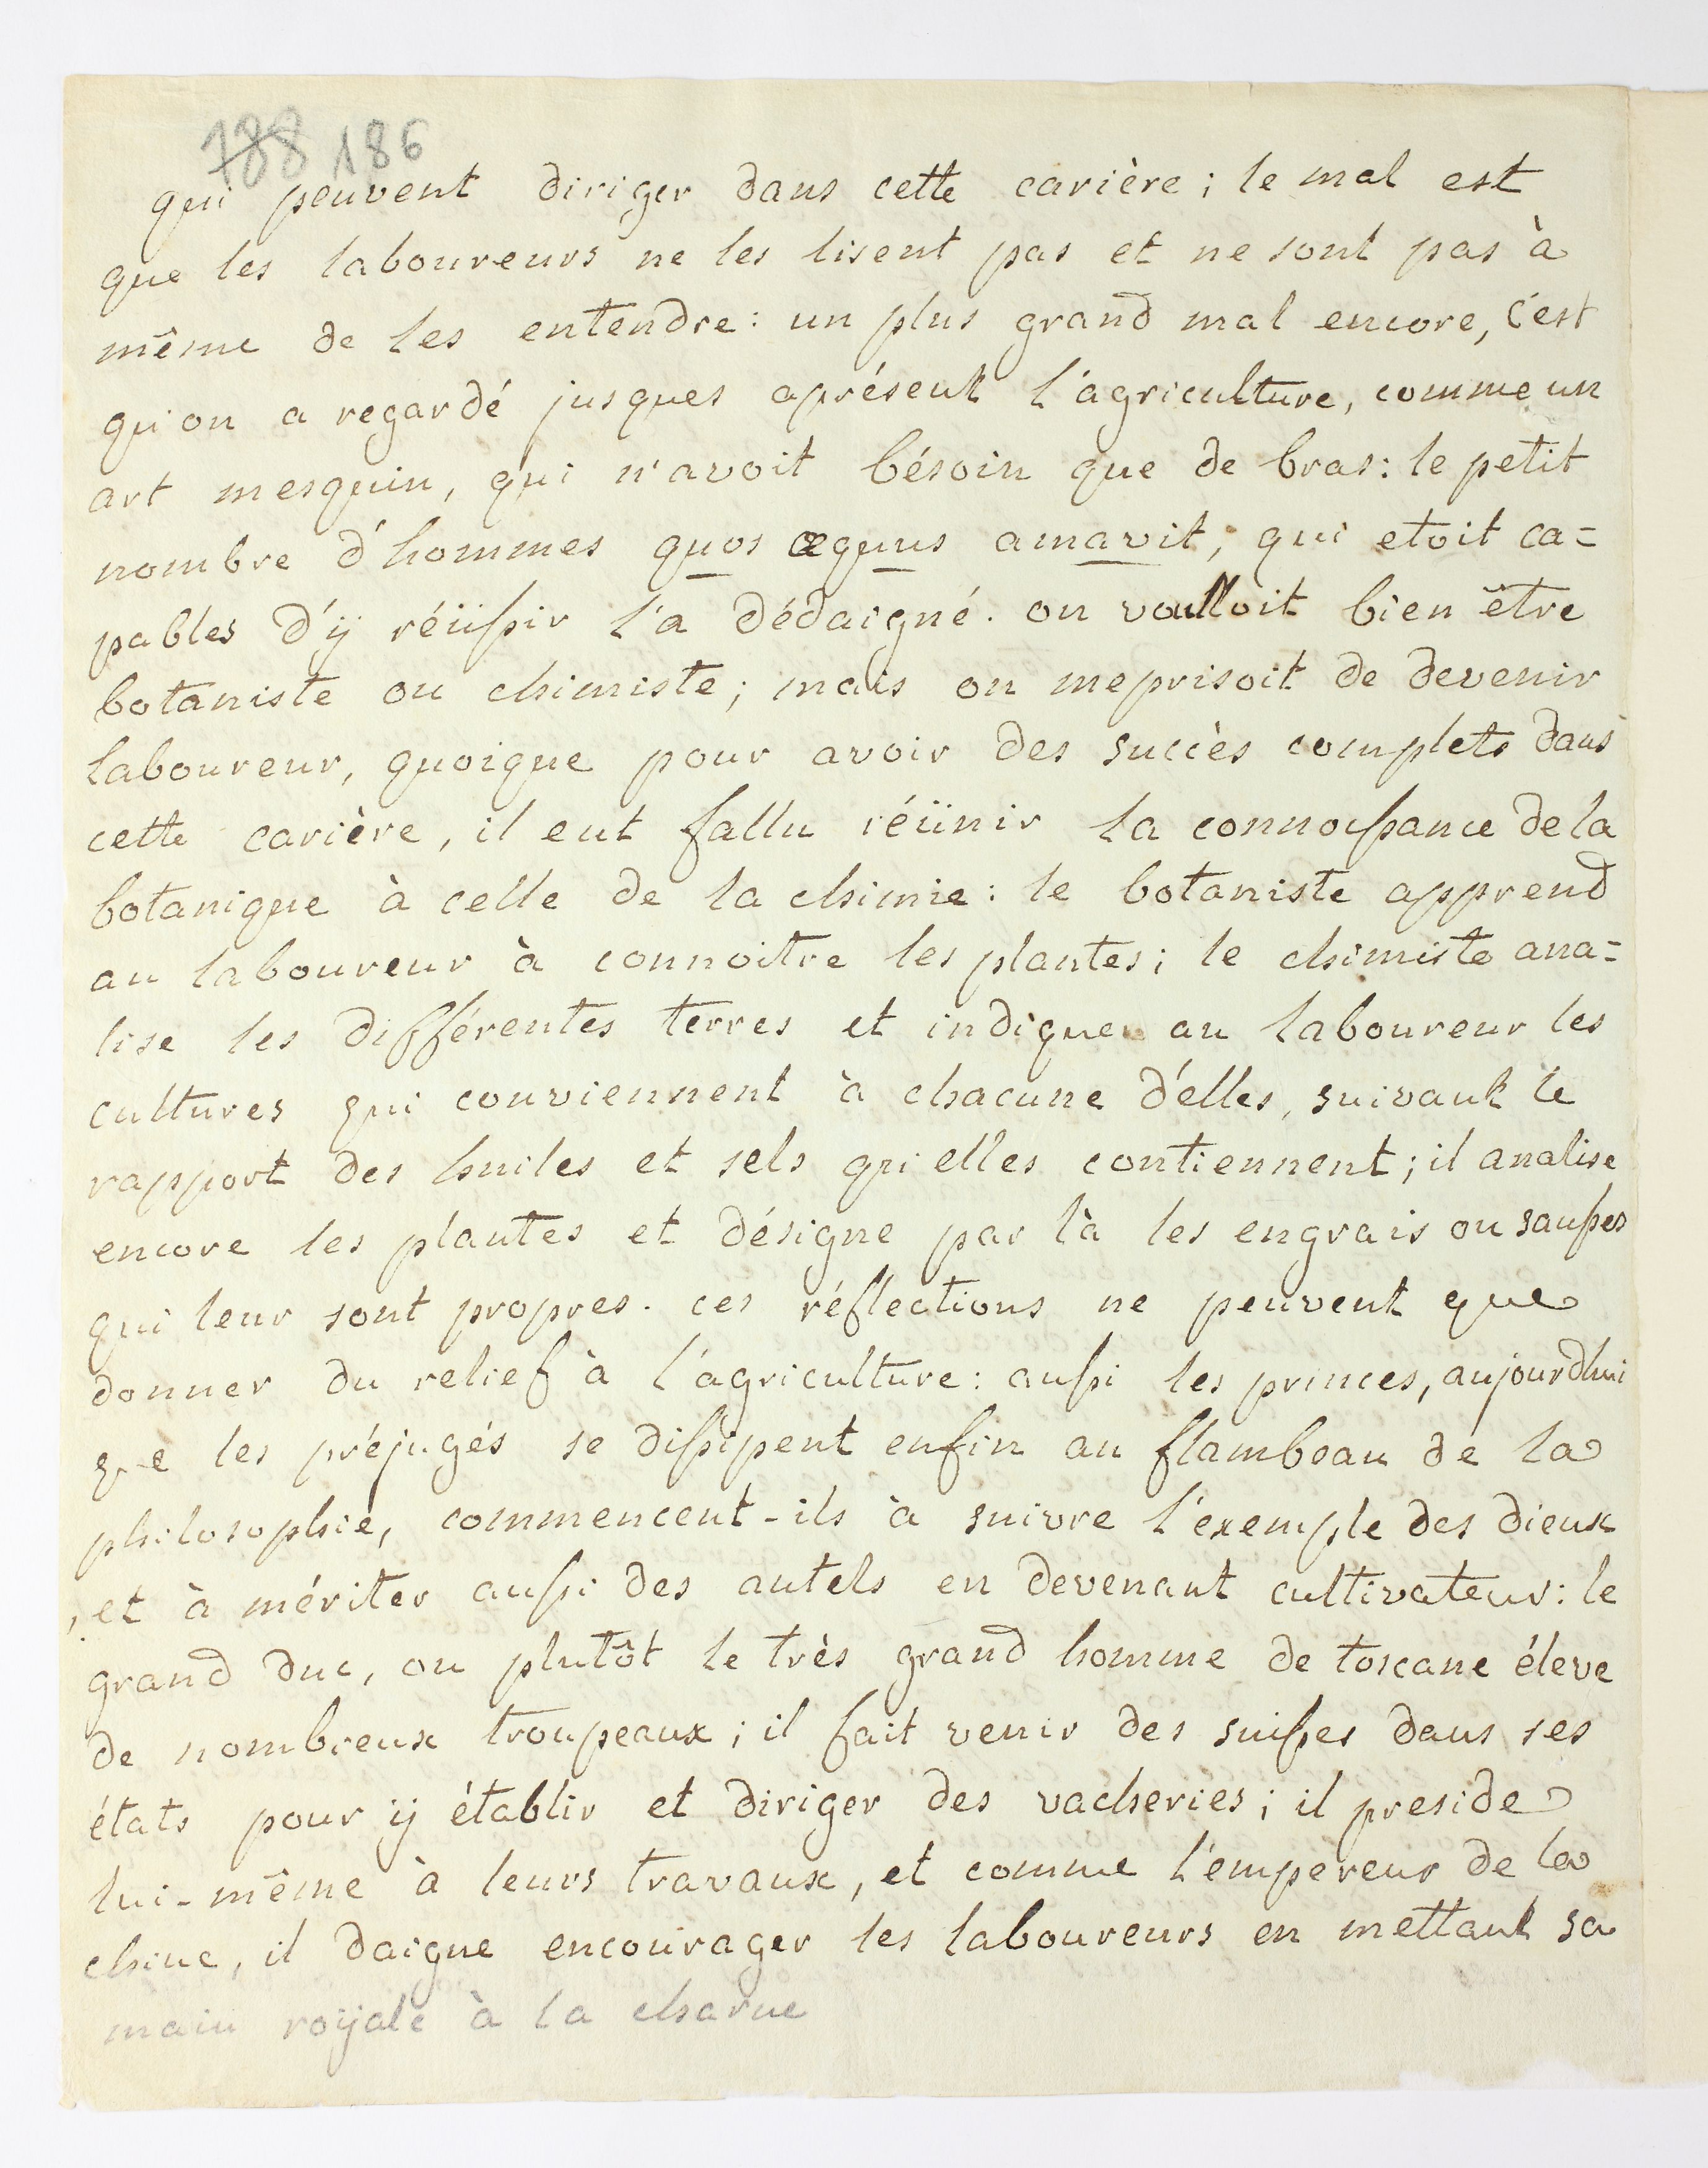 788 186
qui peuvent diriger dans cette carière; le mal est
que les laboureurs ne les lisent pas et ne sont pas à
même de les entendre: un plus grand mal encore, c'est
qu'on a regardé jusques aprésent l'agriculture, comme un
art mesquin, qui n'avoit bésoin que de bras: le petit
nombre d'hommes quos æquus amavit, qui etoit ca=
pables d'ÿ réüssir l'a dédaigné. on voulloit bien être
botaniste ou chimiste; mais on meprisoit de devenir
laboureur, quoique pour avoir des succès complets dans
cette carière, il eut fallu réünir la connoissance de la
botanique à celle de la chimie: le botaniste apprend
au laboureur à connoitre les plantes; le chimiste ana=
lise les différentes terres et indique au laboureur les
cultures qui conviennent à chacune d'elles, suivant le
rapport des huiles et sels qu'elles contiennent; il analise
encore les plantes et désigne par là les engrais ou sausses
qui leur sont propres. ces réflections ne peuvent que
donner du relief à l'agriculture: aussi les princes, aujourdhui
que les préjugés se dissipent enfin au flambeau de la
philosophie, commencent-ils à suivre l'exemple des dieux
, et à mériter aussi des autels en devenant cultivateurs: le
grand duc, ou plutôt le très grand homme de toscane éleve
de nombreux troupeaux; il fait venir des suisses dans ses
états pour ÿ établir et diriger des vacheries; il preside
lui-même à leurs travaux, et comme l'empereur de la
chine, il daigne encourager les laboureurs en mettant sa
main roÿale à la charue